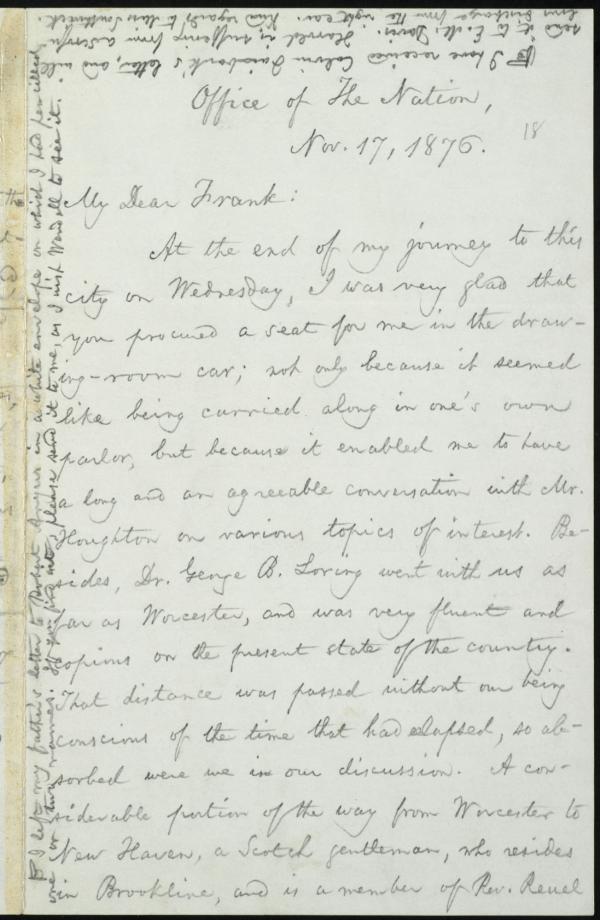 Office of The Nation,
Nov. 17, 1876.
18
My Dear Frank:
At the end of my journey to this
city on Wednesday, I was very glad that
you procured a seat for me in the draw-
ing-room car; not only because it seemed
like being carried along in one's own
parlor, but because it enabled me to have
a long and an agreeable conversation with Mr.
Houghton on various topics of interest. Be-
sides, Dr. George B. Loring went with us as
far as Worcester, and was very fluent and
copious on the present state of the country.
That distance was passed without our being
conscious of the time that had elapsed, so ab-
sorbed were we in our discussion. A con-
siderable portion of the way from Worcester to
New Haven, a Scotch gentleman, who resides
in Brookline, and is a member of Rev. Reuel
I have received Calvin Fairbank's letter, and will
send it to E. M. Davis. Harold is suffering from a
discharge from the right ear. Kind regards to
I left my father's letter to Robert in a white envelope on which I had pencilled
one or two names. If you find it, please send it to me, as I wish Wendell to see it.